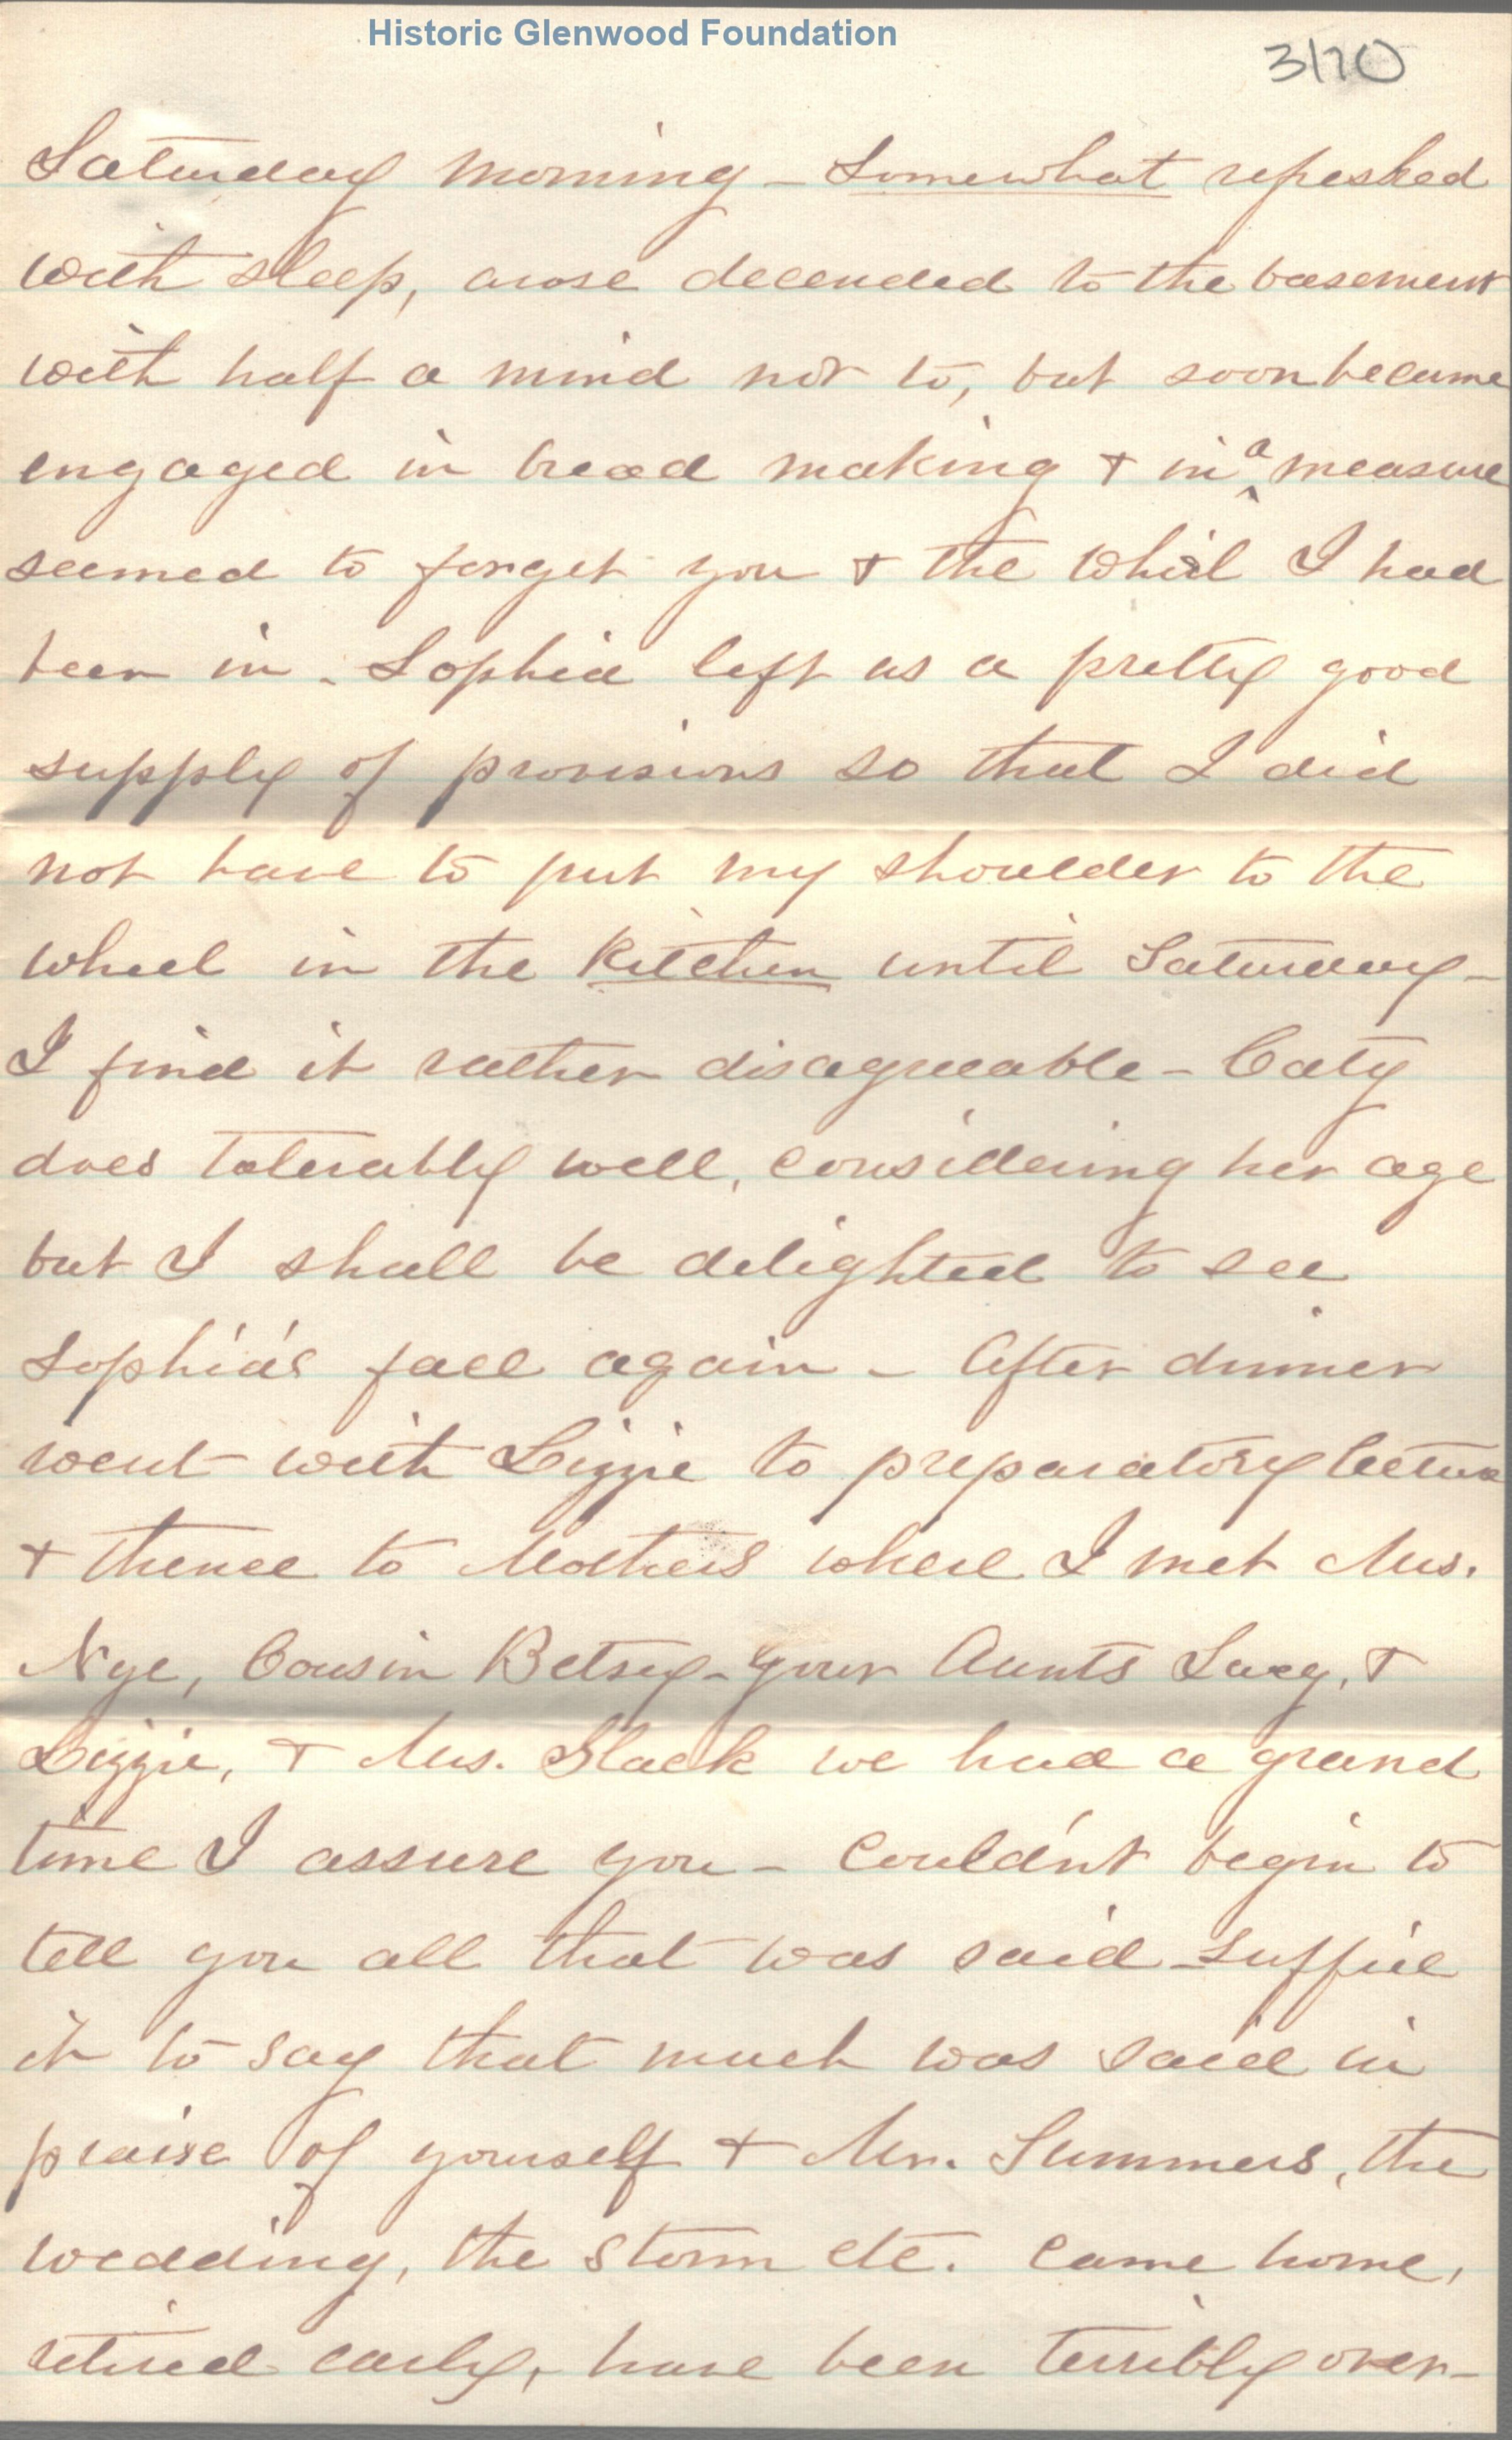 Historic Glenwood Foundation
3/10
Saturday morning - Somewhat refreshed
with sleep, arose decended to the basement
with half a mind not to, but soon became
engaged in bread making + in a measure
seemed to forget you + the whirl I had
been in - Sophia left us a pretty good
supply of provisions so that I did
not have to put my shoulder to the
wheel in the Kitchen until Saturday -
I find it rather disagreeable - Caty
does tolerably well, considering her age
but I shall be delighted to see
Sophia's face again - After dinner
went with Lizzie to preparatory lecture
+ thence to Mothers where I met Mrs.
Nye, Cousin Betsey - your Aunts Lucy, +
Lizzie, + Mrs. Slack we had a grand
time I assure you - Could'nt begin to
tell you all that was said - Suffice
it to say that much was said in
praise of yourself + Mr. Summers, the
wedding, the storm etc. Came home,
retired early, have been terribly over-